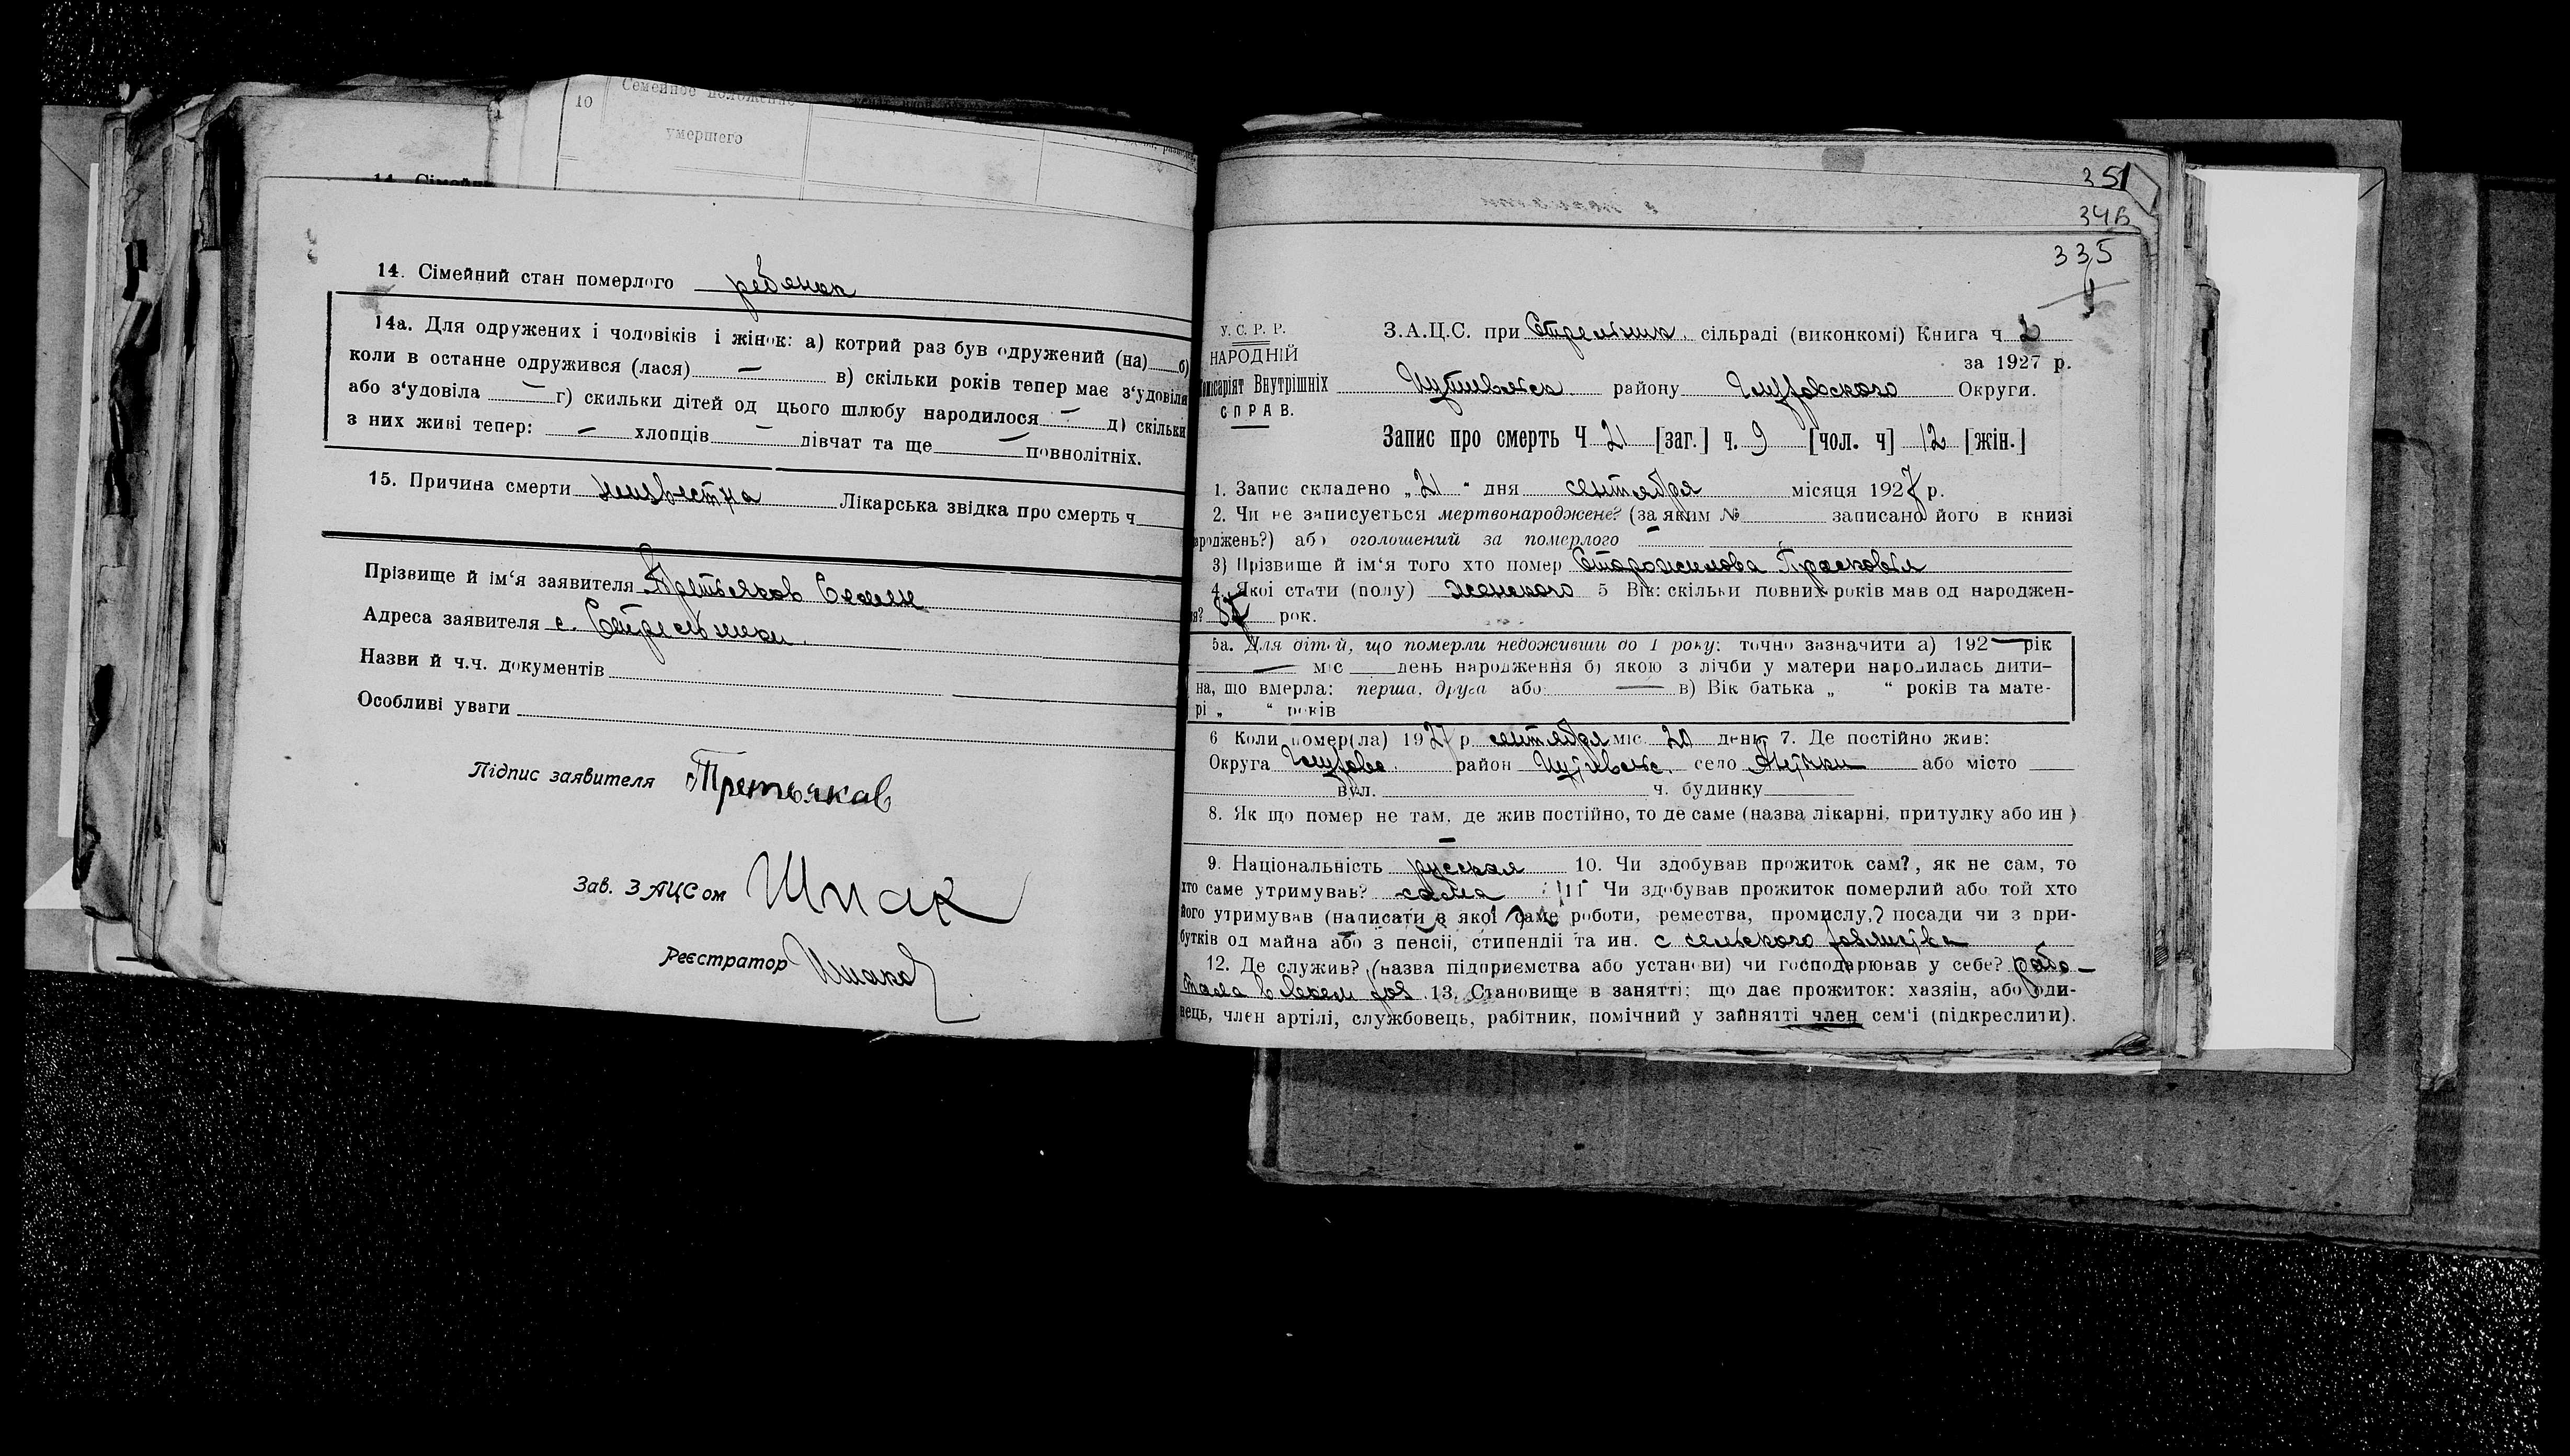 10
Семейное положение
умершего
14. Сімейний стан померлого ребенок
14а. Для одружених і чоловіків і жінок: а) котрий раз був одружений (на) б)
коли в останне одружився (лася) — в) скільки років тепер має з'удовіла
або з'удовіла — г) скильки дітей од цього шлюбу народилося — д) скільки
з них живі тепер: — хлопців — дівчат та ще — повнолітніх.
15. Причина смерти неизвестна Лікарська звідка про смерть ч
Прізвище й ім'я заявителя Третьяков
Адреса заявителя с. Стрельники.
Назви й ч.ч. документів
Особливі уваги
Підпис заявителя Третьяков
Зав. ЗАЦСом Шпак
Реєстратор
351
335
У. С. Р. Р.
НАРОДНІЙ
Комісаріят Внутрішніх
СПРАВ.
З.А.Ц.С. при Стрельник. сільраді (виконкомі) Книга ч 2
за 1927 р.
Путивльск. району Глуховского Округи.
Запис про смерть Ч 21 [заг.] ч. 9 [чол. ч] 12 [жін.]
1. Запис складено „21" дня сентября місяця 1927 р.
2. Чи не записується мертвонароджене? (за яким № записано його в книзі
вроджень?) або оголошений за померлого —
3) Прізвище й ім'я того хто помер Сторожилова Прасковья
4. Якої стати (полу) женского 5 Вік: скільки повних років мав од народжен-
ня? рок.
5а. Для дітей, що померли недоживши до 1 року: точно зазначити а) 192— рік
— міс день народження б) якою з лічби у матери народилась дити-
на, що вмерла: перша, друга або — в) Вік батька „ " років та мате-
рі „ " років
6 Коли помер(ла) 1927 р сентября міс. 20 день 7. Де постійно жив:
Округа Глухово. район Путивльс. село або місто
вул. ч. будинку
8. Як що помер не там, де жив постійно, то де саме (назва лікарні, притулку або ин )
—
9. Національність русская 10. Чи здобував прожиток сам?, як не сам, то
хто саме утримував? сама 11 Чи здобував прожиток померлий або той хто
його утримував (написати з якої саме роботи, ремества, промислу,? посади чи з при-
бутків од майна або з пенсії, стипендії та ин. с сельского хозяйства
12. Де служив? (назва підприємства або установи) чи господарював у себе? рабо-
тала в своем хоз. 13. Становище в занятті: що дає прожиток: хазяін, або оди-
нець, член артілі, службовець, рабітник, помічний у зайнятті член сем'і (підкреслити).